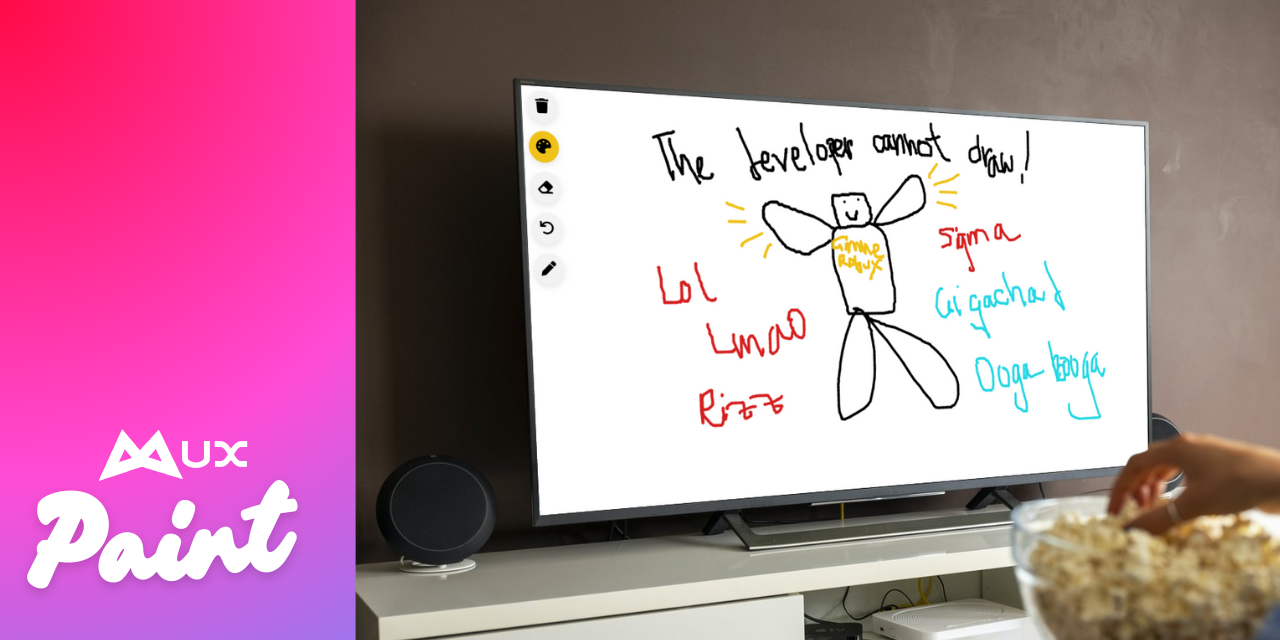 MUX
Paint
The developer cannot draw!
Gimme
Robux
Lol
Lmao
Rizz
sigma
Gigachad
Ooga booga